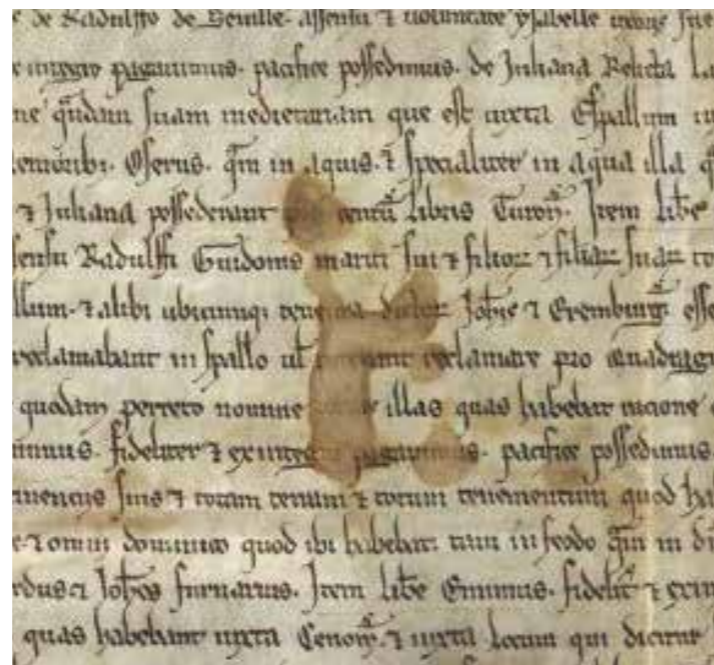 e de Radulffo de Seuille. assensu ⁊ uoluntate ysabelle uxoris sue
integro pagauimus. pacifice possedimus. de Juliana Relicta La
ne q̃dam suam medietariam que est iuxta Espallum
Oserus. q̃m in aquis. ⁊ specialiter in aqua illa
⁊ Juliana possederant centũ libris Turoñ. Item libe
sensu Radulffi Guidonis mariti sui ⁊ filioꝝ ⁊ filiaꝝ suaꝝ
llum. ⁊ alibi ubicunqꝫ Johñe ⁊ Eremburg̃ esse
reclamabant in spallo ul' reclamare pro quadrag
quodam perreto nomine illas quas habebat racione
imus. fideliter ⁊ ex integro pagauimus. pacifice possedimus.
suis ⁊ totam terram ⁊ totum tenementum quod ha
e ⁊ omni dominico quod ibi habebat tam in feodo q̃m in
Joh̃es furnarius. Item libe Emimus. fidelit̃ ⁊ ex in
quas habebant iuxta Cenom̃. ⁊ iuxta locum qui dicitur